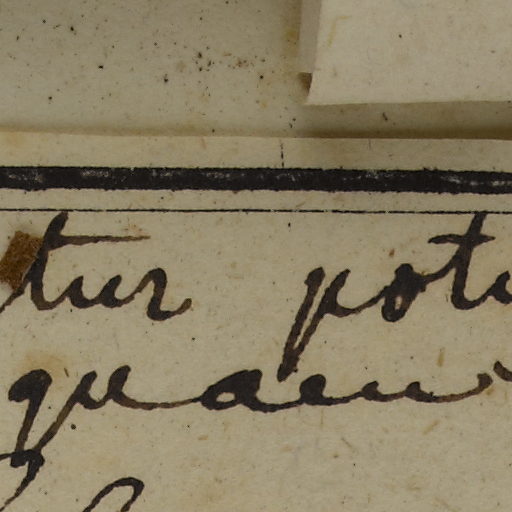 tur pot
quam